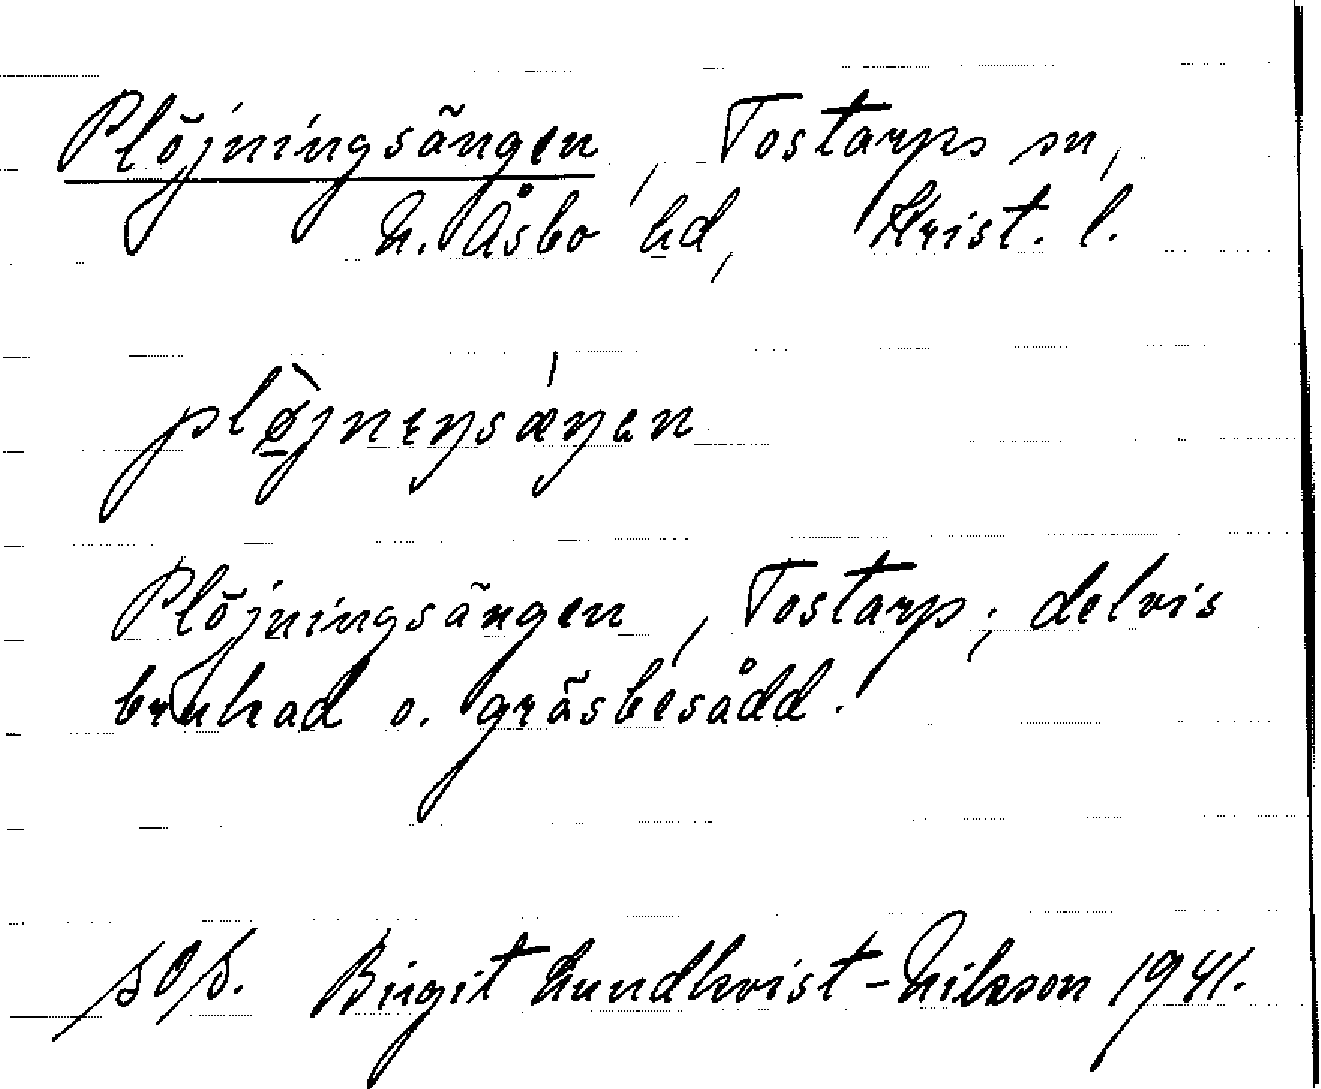 Plöjningsängen, Tostarps sn,
N. Åsbo hd, Krist. l.
Plöjningsängen, Tostarp; delvis
brukad o. gräsbesådd.
Birgit Lundkvist-Nilsson 1941.